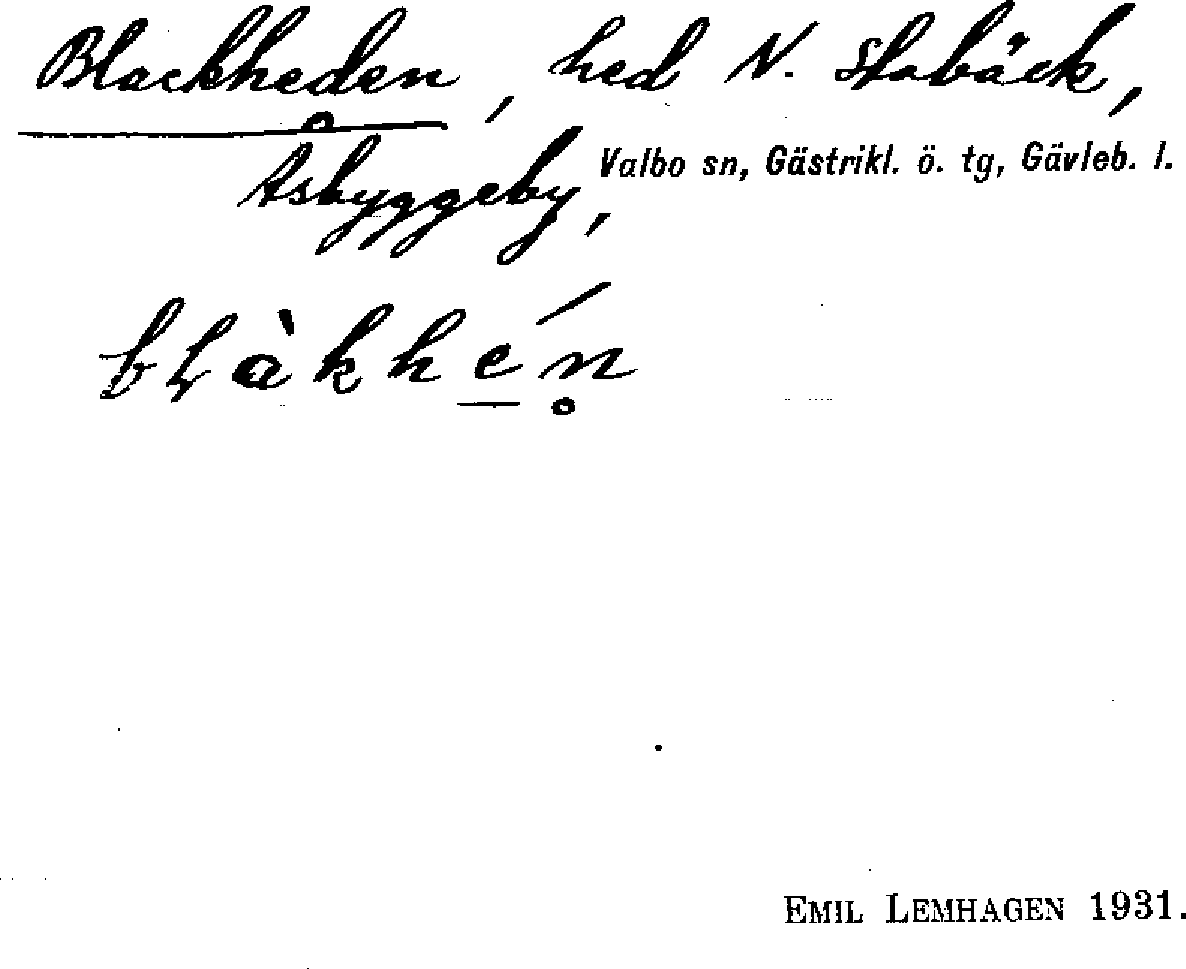 Blackheden, hed N. Stabäck,
Åsbyggeby, Valbo sn, Gästrikl. ö. tg, Gävleb. l.
blàkhén
EMIL LEMHAGEN 1931.